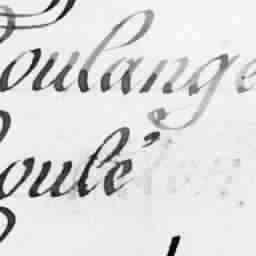 oulange
oulé